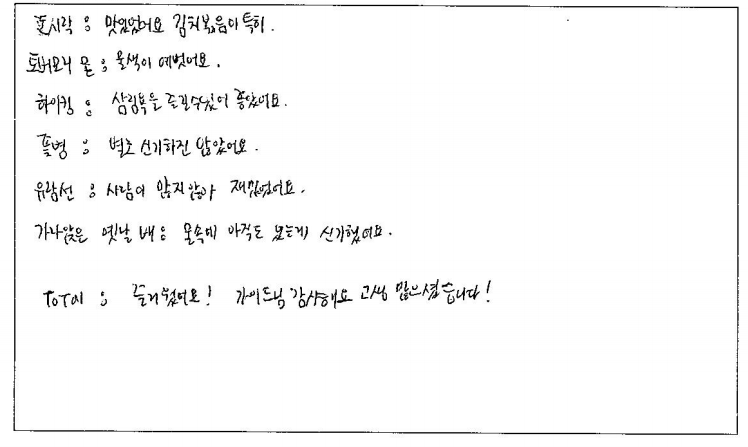 도시락 : 맛있었어요 김치볶음이 특히.
토버모리 물 : 물색이 예뻤어요.
하이킹 : 삼림욕을 즐길수있어 좋았어요.
꽃병 : 별로 신기하진 않았어요.
유람선 : 사람이 많지않아 재밌었어요.
가라앉은 옛날 배 : 물속에 아직도 있는게 신기했어요.
ToTal : 즐거웠어요! 가이드님 감사해요 고생 많으셨습니다!